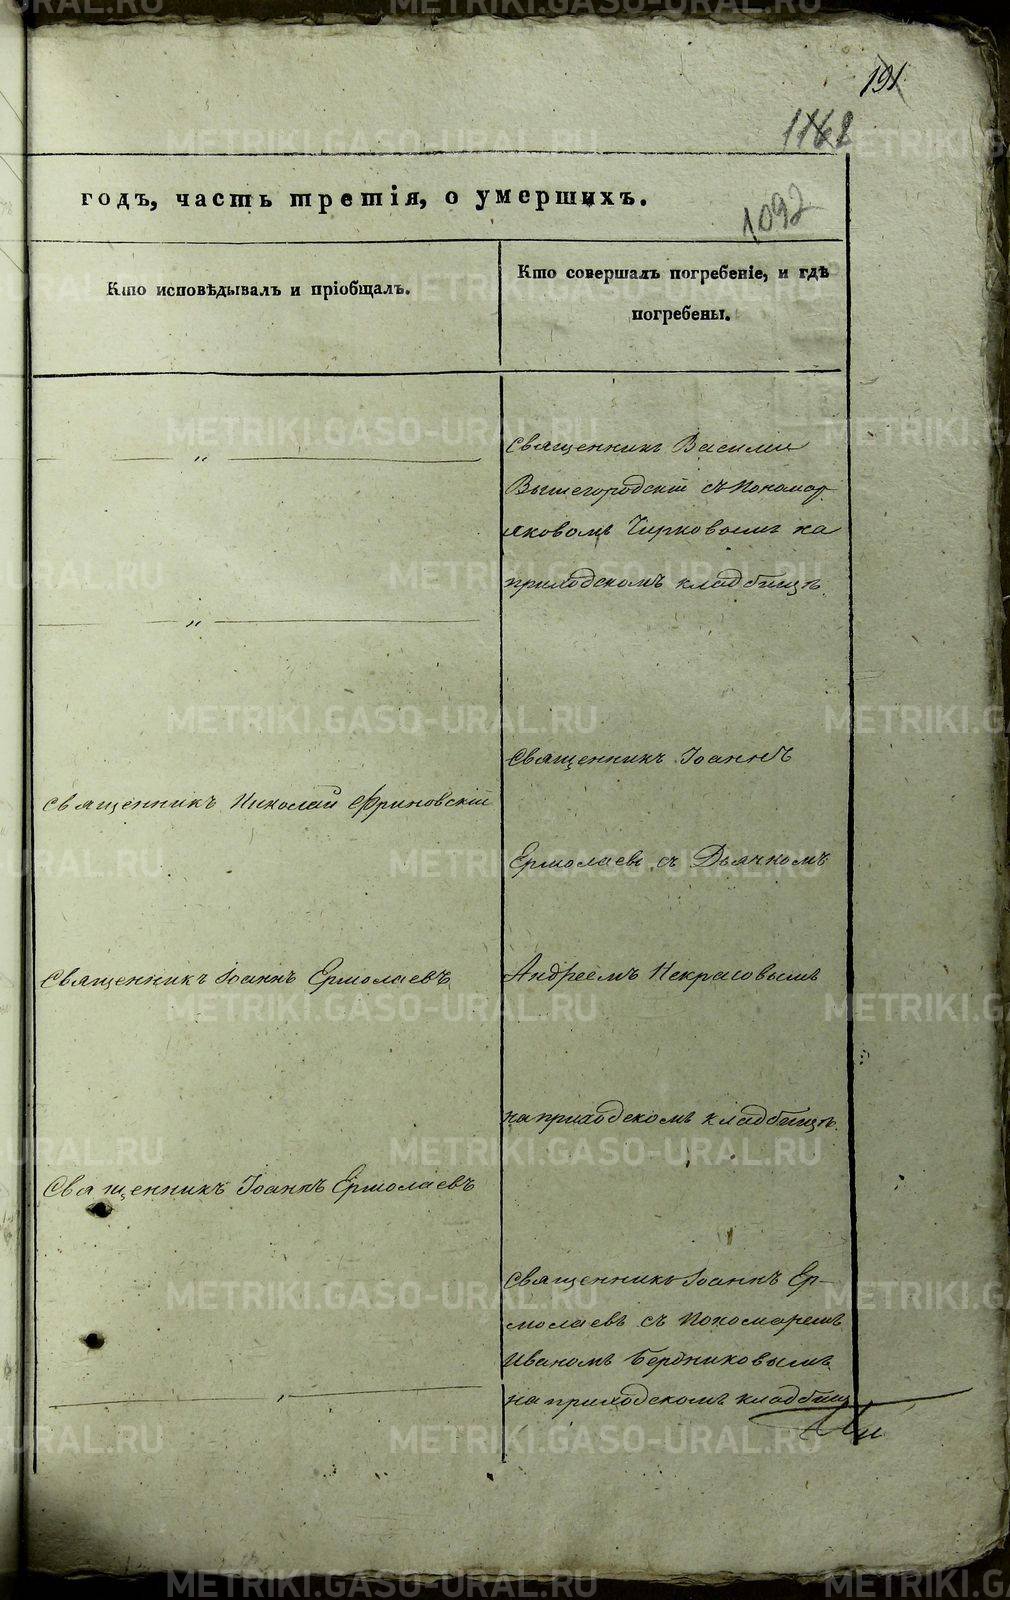 191
1162
годъ, часть третія, о умершихъ.
1092
Кто исповѣдывалъ и пріобщалъ.
Кто совершалъ погребеніе, и гдѣ
погребены.
Священникъ Василий
Вышегородскій съ Пономар.
Яковомъ Чирковымъ на
приходскомъ кладбищѣ.
Священникъ Іоаннъ
Священникъ Николай Фриновскій
Ермолаевъ съ Дьячкомъ
Священникъ Іоаннъ Ермолаевъ
Андреемъ Некрасовымъ
на приходскомъ кладбищѣ.
Священникъ Іоаннъ Ермолаевъ
Священникъ Іоаннъ Ер-
молаевъ съ Пономаремъ
Иваномъ Бердниковымъ
на приходскомъ кладбищ
METRIKI.GASO-URAL.RU